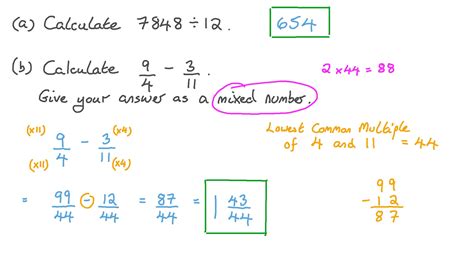 (a) Calculate 7848 ÷ 12. 654
(b) Calculate 9/4 − 3/11.
2 × 44 = 88
Give your answer as a mixed number.
(x11) 9/4 (x11) − 3/11 (x4) (x4)
Lowest Common Multiple
of 4 and 11 = 44
= 99/44 − 12/44 = 87/44 = 1 43/44
99
− 12
87